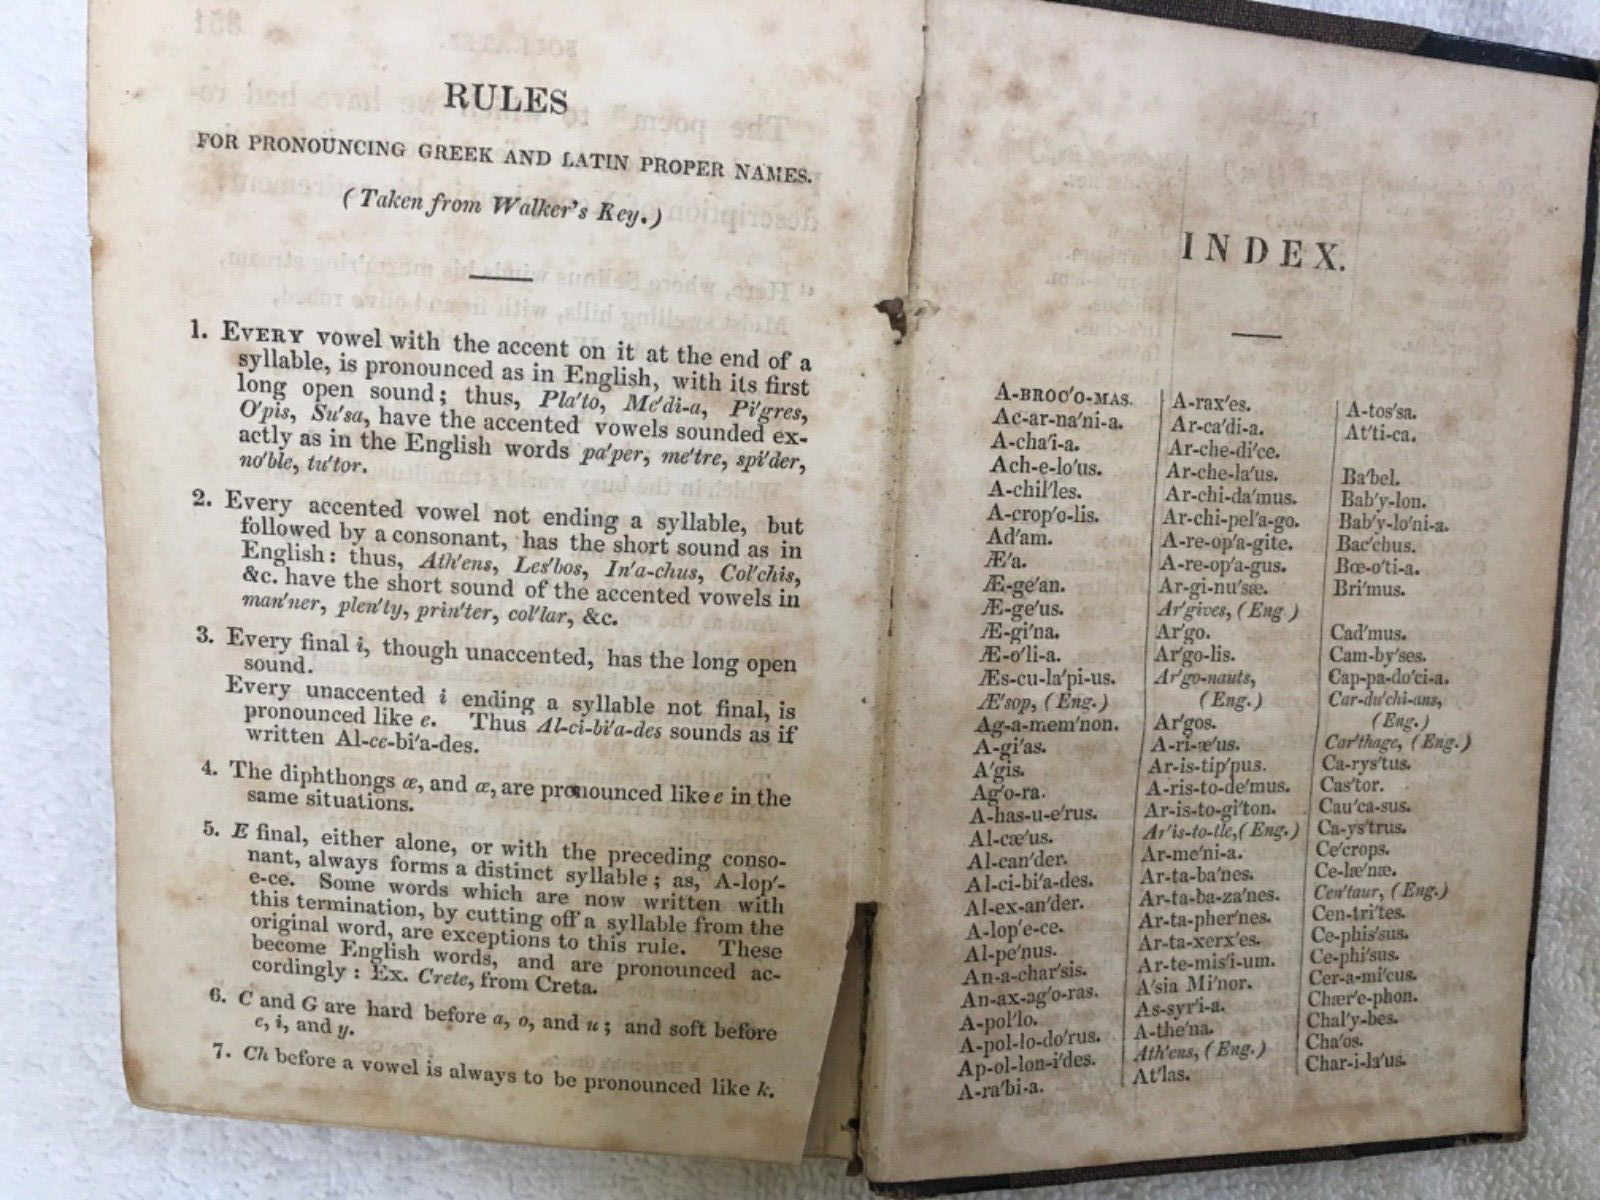 RULES
FOR PRONOUNCING GREEK AND LATIN PROPER NAMES.
(Taken from Walker's Key.)
1. EVERY vowel with the accent on it at the end of a
syllable, is pronounced as in English, with its first
long open sound; thus, Pla'to, Me'di-a, Pi'gres,
O'pis, Su'sa, have the accented vowels sounded ex-
actly as in the English words pa'per, me'tre, spi'der,
no'ble, tu'tor.
2. Every accented vowel not ending a syllable, but
followed by a consonant, has the short sound as in
English: thus, Ath'ens, Les'bos, In'a-chus, Col'chis,
&c. have the short sound of the accented vowels in
man'ner, plen'ty, prin'ter, col'lar, &c.
3. Every final i, though unaccented, has the long open
sound.
Every unaccented i ending a syllable not final, is
pronounced like e. Thus Al-ci-bi'a-des sounds as if
written Al-ce-bi'a-des.
4. The diphthongs æ, and œ, are pronounced like e in the
same situations.
5. E final, either alone, or with the preceding conso-
nant, always forms a distinct syllable; as, A-lop'-
e-ce. Some words which are now written with
this termination, by cutting off a syllable from the
original word, are exceptions to this rule. These
become English words, and are pronounced ac-
cordingly: Ex. Crete, from Creta.
6. C and G are hard before a, o, and u; and soft before
e, i, and y.
7. Ch before a vowel is always to be pronounced like k.
INDEX.
A-BROC'O-MAS.
Ac-ar-na'ni-a.
A-cha'i-a.
Ach-e-lo'us.
A-chil'les.
A-crop'o-lis.
Ad'am.
Æ'a.
Æ-ge'an.
Æ-ge'us.
Æ-gi'na.
Æ-o'li-a.
Æs-cu-la'pi-us.
Æ'sop, (Eng.)
Ag-a-mem'non.
A-gi'as.
A'gis.
Ag'o-ra.
A-has-u-e'rus.
Al-cæ'us.
Al-can'der.
Al-ci-bi'a-des.
Al-ex-an'der.
A-lop'e-ce.
Al-pe'nus.
An-a-char'sis.
An-ax-ag'o-ras.
A-pol'lo.
A-pol-lo-do'rus.
Ap-ol-lon-i'des.
A-ra'bi-a.
A-rax'es.
Ar-ca'di-a.
Ar-che-di'ce.
Ar-che-la'us.
Ar-chi-da'mus.
Ar-chi-pel'a-go.
A-re-op'a-gite.
A-re-op'a-gus.
Ar-gi-nu'sæ.
Ar'gives, (Eng )
Ar'go.
Ar'go-lis.
Ar'go-nauts,
(Eng.)
Ar'gos.
A-ri-æ'us.
Ar-is-tip'pus.
A-ris-to-de'mus.
Ar-is-to-gi'ton.
Ar'is-to-tle,(Eng.)
Ar-me'ni-a.
Ar-ta-ba'nes.
Ar-ta-ba-za'nes.
Ar-ta-pher'nes.
Ar-ta-xerx'es.
Ar-te-mis'i-um.
A'sia Mi'nor.
As-syr'i-a.
A-the'na.
Ath'ens, (Eng.)
At'las.
A-tos'sa.
At'ti-ca.
Ba'bel.
Bab'y-lon.
Bab'y-lo'ni-a.
Bac'chus.
Bœ-o'ti-a.
Bri'mus.
Cad'mus.
Cam-by'ses.
Cap-pa-do'ci-a.
Car-du'chi-ans,
(Eng.)
Car'thage, (Eng.)
Ca-rys'tus.
Cas'tor.
Cau'ca-sus.
Ca-ys'trus.
Ce'crops.
Ce-læ'næ.
Cen'taur, (Eng.)
Cen-tri'tes.
Ce-phis'sus.
Ce-phi'sus.
Cer-a-mi'cus.
Chær'e-phon.
Chal'y-bes.
Cha'os.
Char-i-la'us.